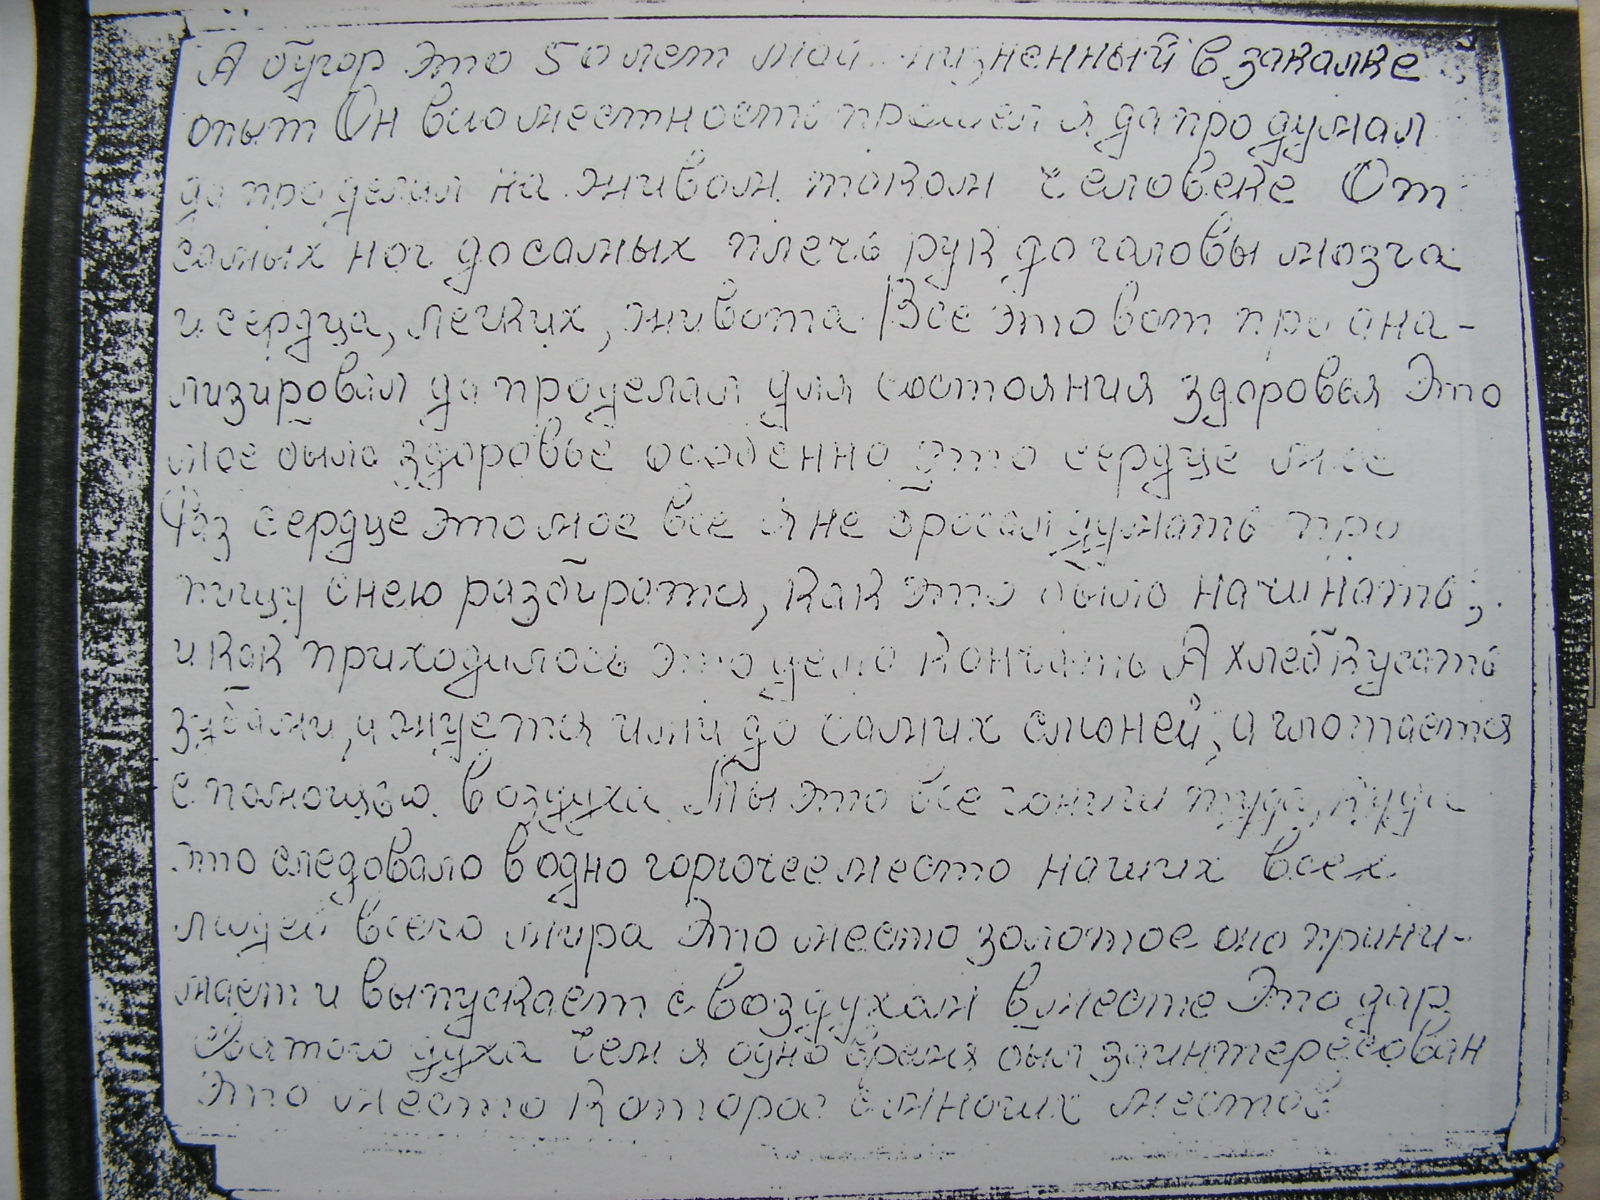 А бугор это 50 лет мой жизненный в закалке
опыт Он в сио местность прошел я да продумал
да проделал на живом таком человеке От
самых ног до самых плечь рук до головы мозга
и сердца, легких, живота Все это вот про ана-
лизировал да проделал для состояния здоровья Это
мое было здоровье особенно это сердце мое
Раз сердце это мое все я не бросал думать про
пищу с нею разбиратя, как это было начинать;
и как приходилось это дело кончать А хлеб кусать
зубами, и жуется ими до самих слюней, и глотается
с помощью воздуха Мы это все гонили туда, куда
это следовало в одно горючее место наших всех
людей всего мира Это место золотое оно прини-
мает и выпускает с воздухам вместе Это дар
Святого духа Чем я одно время был заинтересован
Это место которое с многих местов